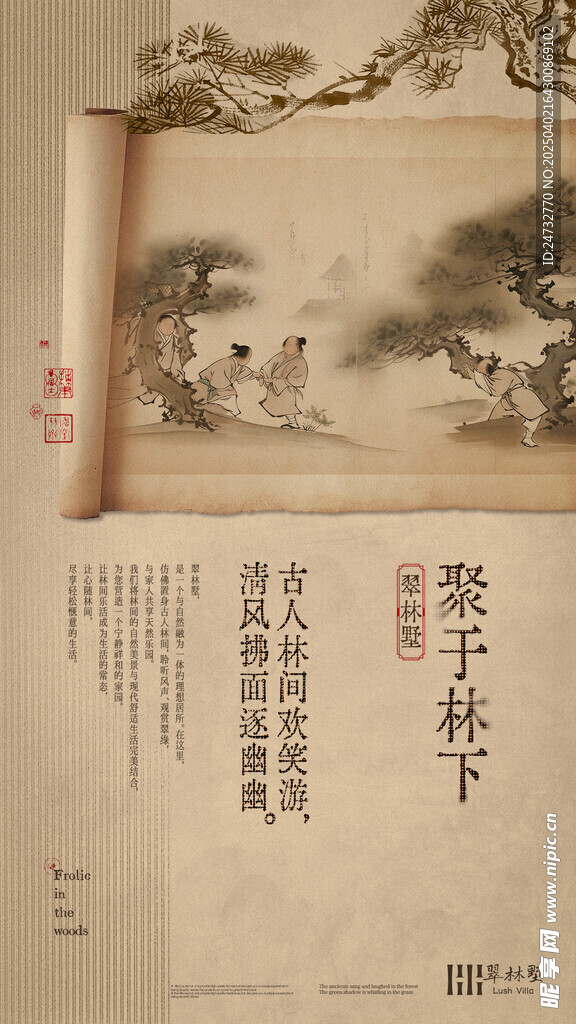 聚于林下
翠林墅
古人林间欢笑游，
清风拂面逐幽幽。
翠林墅，
是一个与自然融为一体的理想居所。在这里，
仿佛置身古人林间，聆听风声、观赏翠绿，
与家人共享天然乐园。
我们将林间的自然美景与现代舒适生活完美结合，
为您营造一个宁静祥和的家园。
让林间乐活成为生活的常态，
让心随林间，
尽享轻松惬意的生活。
Frolic
in
the
woods
The ancients sang and laughed in the forest
The green shadow is whistling in the grass.
翠林墅
Lush Villa
ID:24732770 NO:20250402164300869102
昵享网 www.nipic.cn